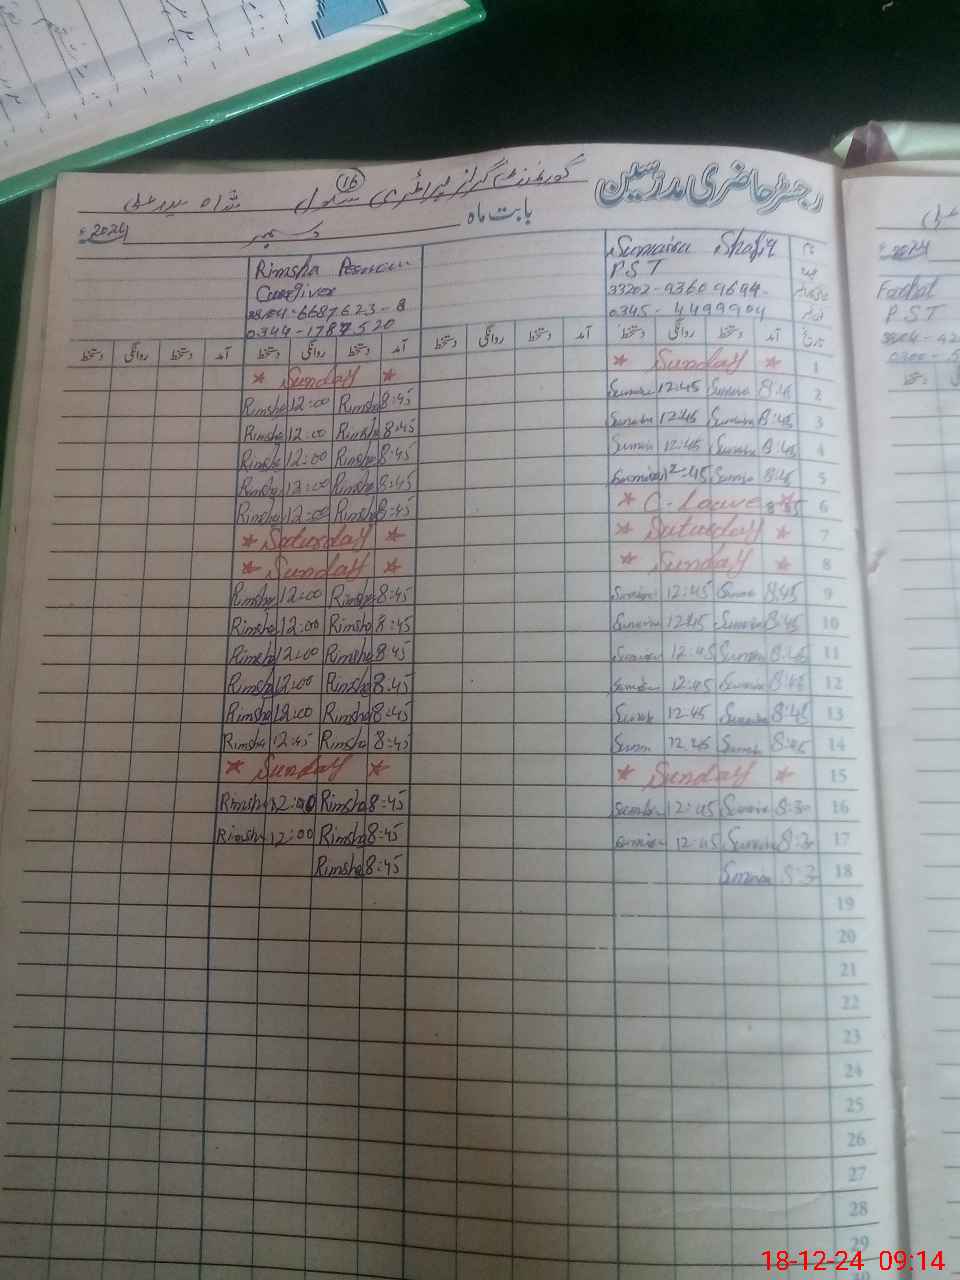 رجسٹر حاضری مدرسین
گورنمنٹ گرلز پرائمری سکول
16
بابت ماہ دسمبر 2024ء
Sumaira Shafiq
PST
33202-9360 9694-
0345-4499904
Rimsha
Caregiver
6687623-8
0344-1787520
نام
عہدہ
تاریخ آمد دستخط روانگی دستخط آمد دستخط روانگی دستخط آمد دستخط روانگی دستخط آمد دستخط روانگی دستخط
1 * Sunday * * Sunday *
2 8:45 Sumaira 12:45 Sumaira 8:45 Rimsha 12:00 Rimsha
3 8:45 Sumaira 12:45 Sumaira 8:45 Rimsha 12:00 Rimsha
4 8:45 Sumaira 12:45 Sumaira 8:45 Rimsha 12:00 Rimsha
5 8:45 Sumaira 12:45 Sumaira 8:45 Rimsha 12:00 Rimsha
6 * C-Leave * 8:45 Rimsha 12:00 Rimsha
7 * Saturday * * Saturday *
8 * Sunday * * Sunday *
9 8:45 Sumaira 12:45 Sumaira 8:45 Rimsha 12:00 Rimsha
10 8:45 Sumaira 12:45 Sumaira 8:45 Rimsha 12:00 Rimsha
11 8:45 Sumaira 12:45 Sumaira 8:45 Rimsha 12:00 Rimsha
12 8:45 Sumaira 12:45 Sumaira 8:45 Rimsha 12:00 Rimsha
13 8:45 Sumaira 12:45 Sumaira 8:45 Rimsha 12:00 Rimsha
14 8:45 Sumaira 12:45 Sumaira 8:45 Rimsha 12:45 Rimsha
15 * Sunday * * Sunday *
16 8:30 Sumaira 12:45 Sumaira 8:45 Rimsha 12:00 Rimsha
17 8:30 Sumaira 12:45 Sumaira 8:45 Rimsha 12:00 Rimsha
18 8:30 Sumaira 8:45 Rimsha
19
20
21
22
23
24
25
26
27
28
29
2024ء
PST
18-12-24 09:14